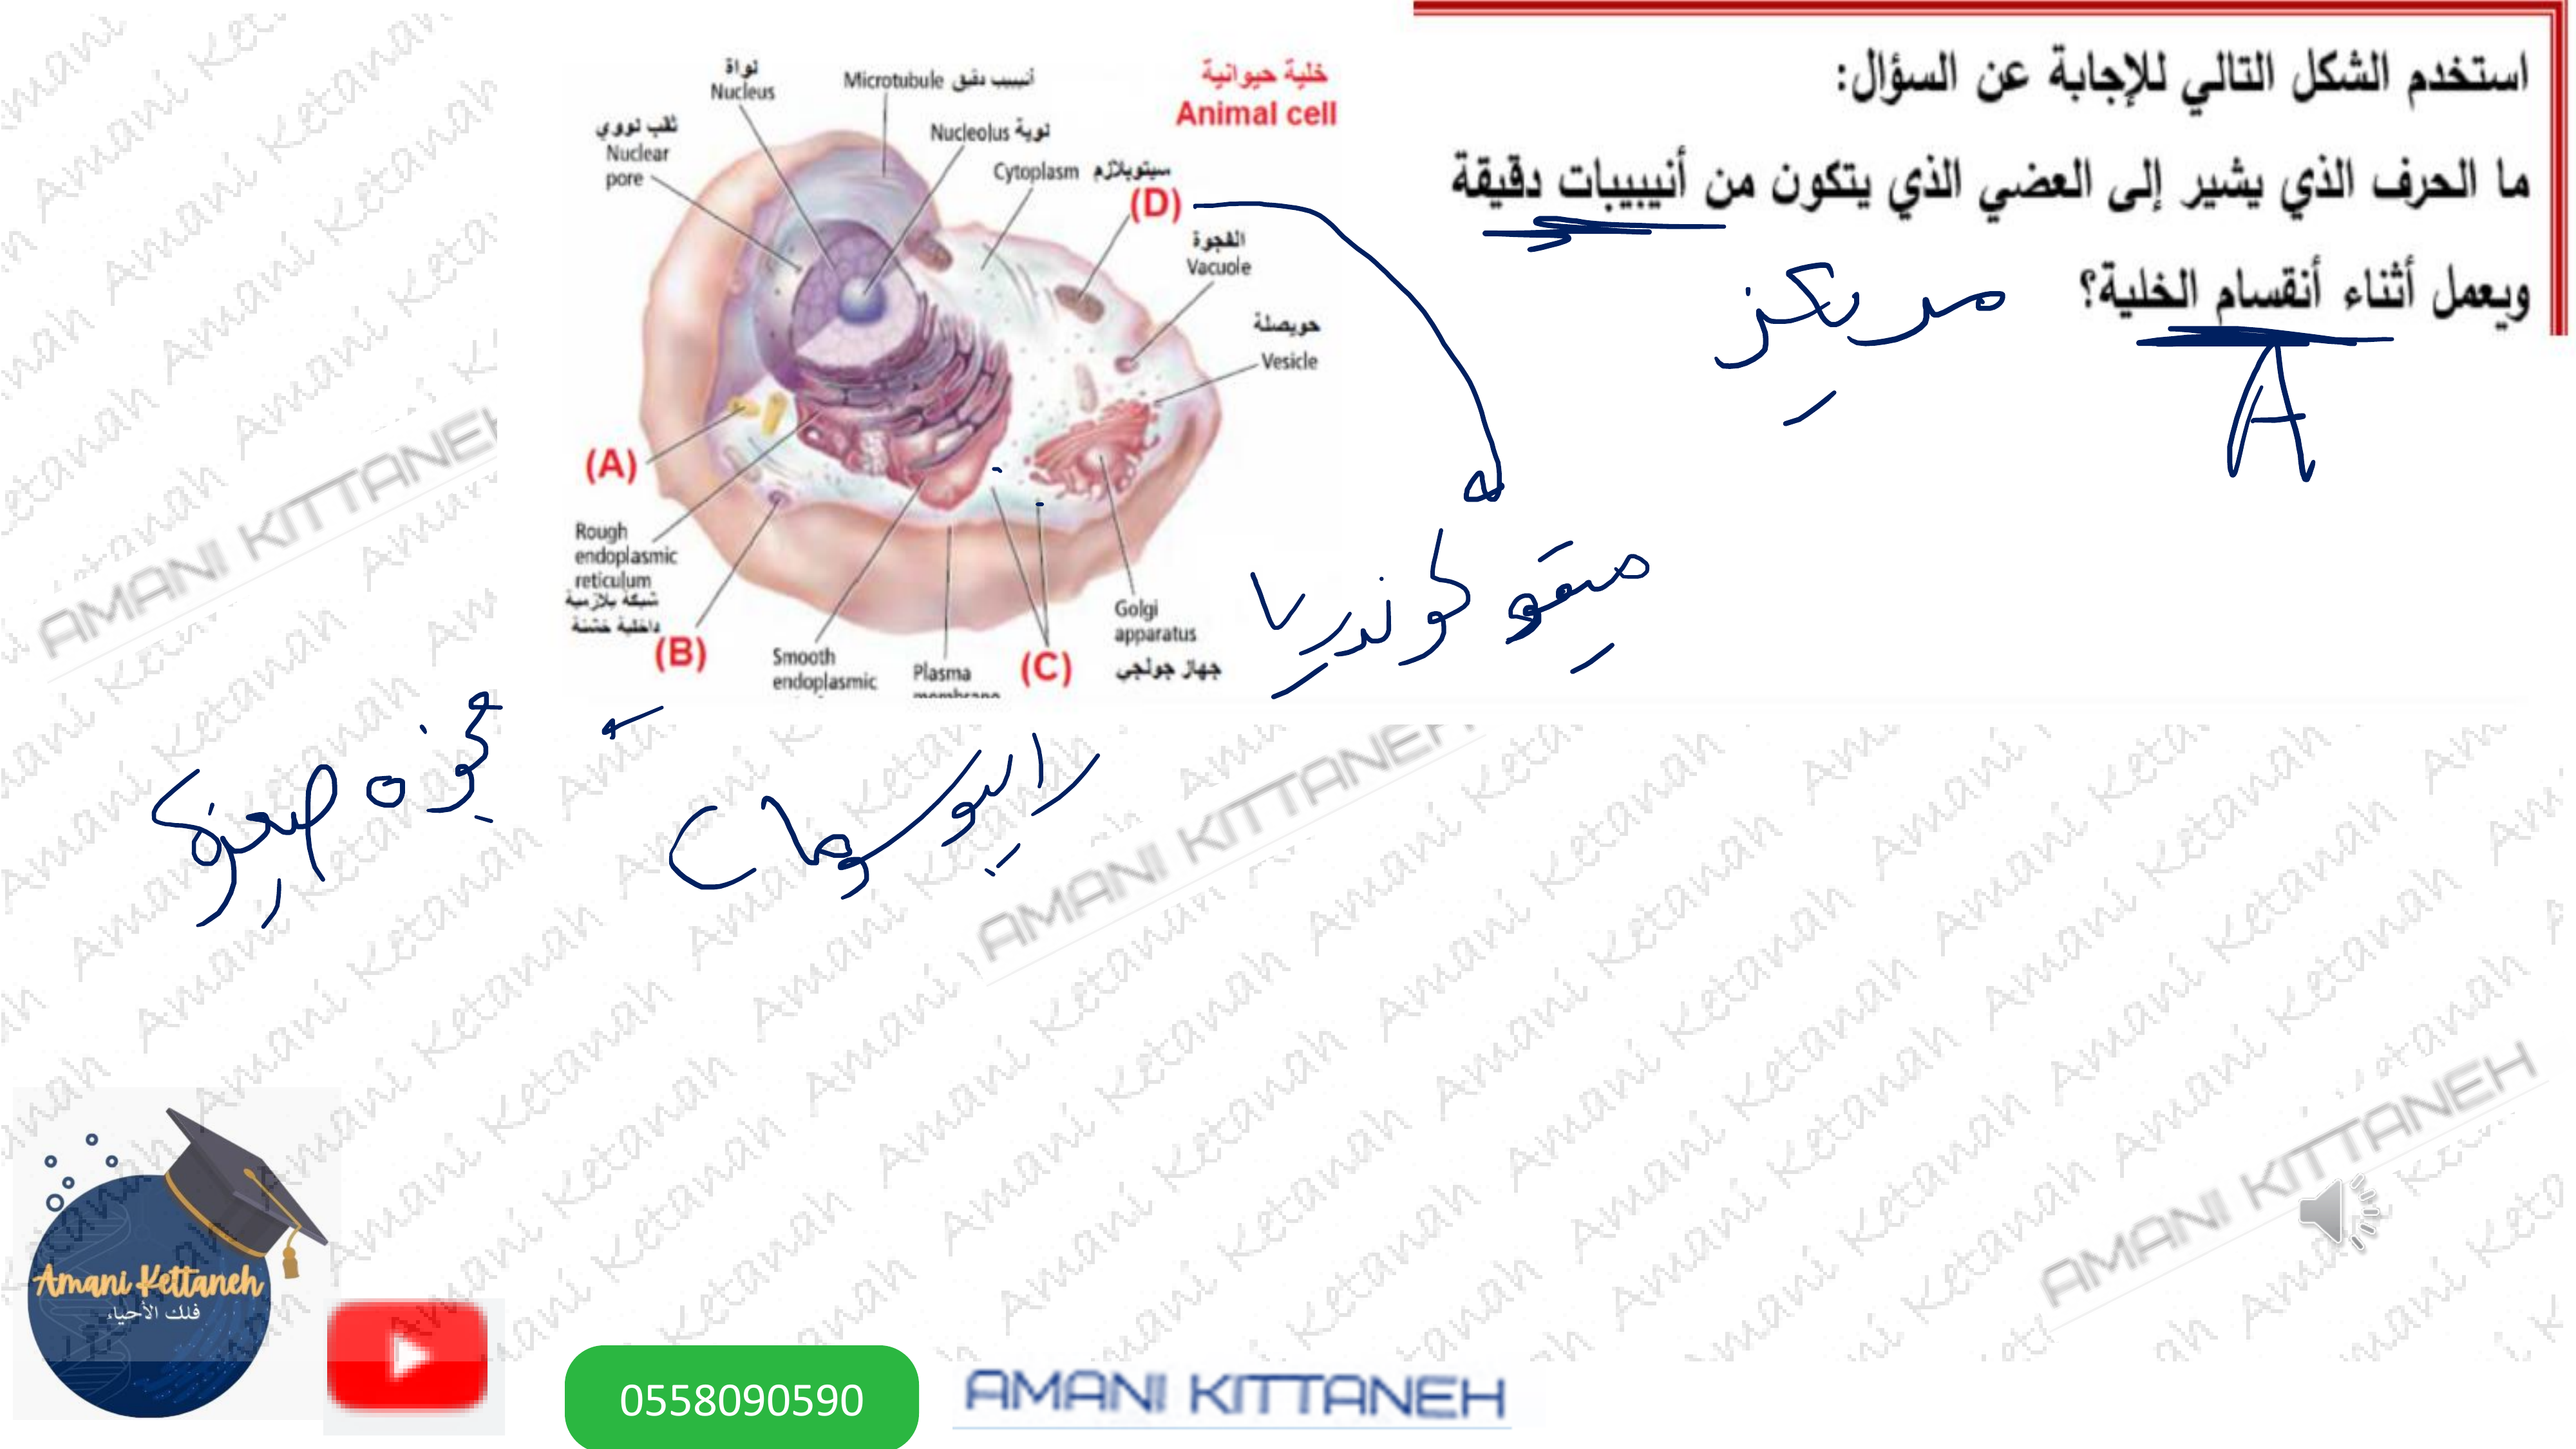 استخدم الشكل التالي للإجابة عن السؤال:
ما الحرف الذي يشير إلى العضي الذي يتكون من أنيبيبات دقيقة
ويعمل أثناء أنقسام الخلية؟
مريكز
A
خلية حيوانية
Animal cell
نواة
Nucleus
Microtubule أنبيب دقيق
ثقب نووي
Nuclear
pore
Nucleolus نوية
Cytoplasm سيتوبلازم
(D)
الفجوة
Vacuole
حويصلة
Vesicle
(A)
Rough
endoplasmic
reticulum
شبكة بلازمية
داخلية خشنة
(B)
Smooth
endoplasmic
Plasma
membrane
(C)
Golgi
apparatus
جهاز جولجي
ميتوكوندريا
رايبوسومات
Amani Kettaneh
فلك الأحياء
0558090590
AMANI KITTANEH